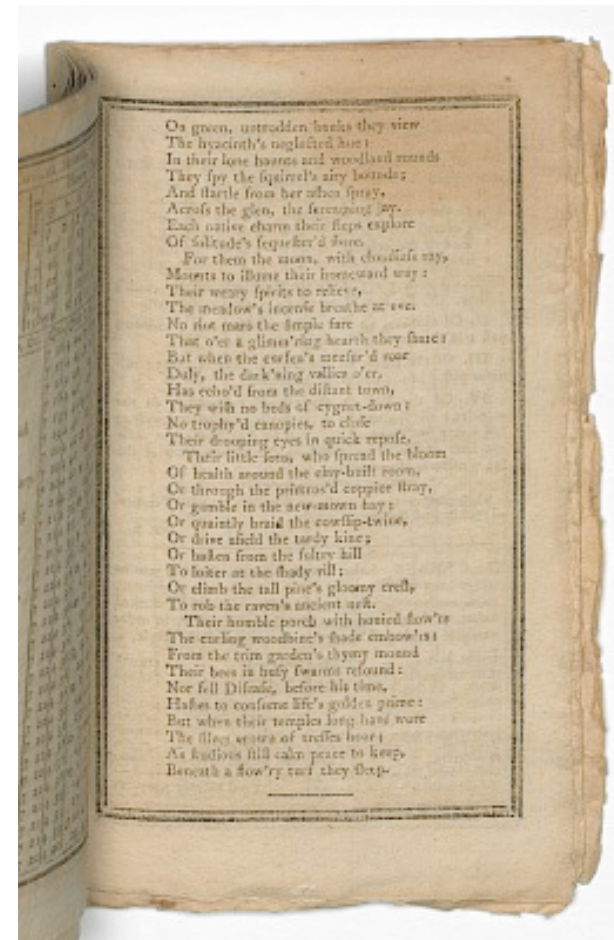 On green, untrodden banks they view
The hyacinth's neglected hue:
In their lone haunts and woodland rounds
They spy the squirrel's airy bounds;
And startle from her ashen spray,
Across the glen, the screaming jay.
Each native charm their steps explore
Of solitude's sequester'd store.
For them the moon, with cloudless ray,
Mounts to illume their homeward way:
Their weary spirits to relieve,
The meadow's incense breathe at eve.
No riot mars the simple fare
That o'er a glimm'ring hearth they share:
But when the curfeu's measur'd roar
Duly, the dark'ning vallies o'er,
Has echo'd from the distant town,
They wish no beds of cygnet-down:
No trophy'd canopies, to close
Their drooping eyes in quick repose.
Their little sons, who spread the bloom
Of health around the clay-built room,
Or through the primros'd coppice stray,
Or gamble in the new-mown hay:
Or quaintly braid the cowslip-twine,
Or drive afield the tardy kine;
Or hasten from the sultry hill
To loiter at the shady rill:
Or climb the tall pine's gloomy crest,
To rob the raven's ancient nest.
Their humble porch with honied flow'rs
The curling woodbine's shade embow'rs:
From the trim garden's thymy mound
Their bees in busy swarms resound:
Nor fell Disease, before his time,
Hastes to consume life's golden prime:
But when their temples long have wore
The silver crown of tresses hoar;
As studious still calm peace to keep,
Beneath a flow'ry turf they sleep.